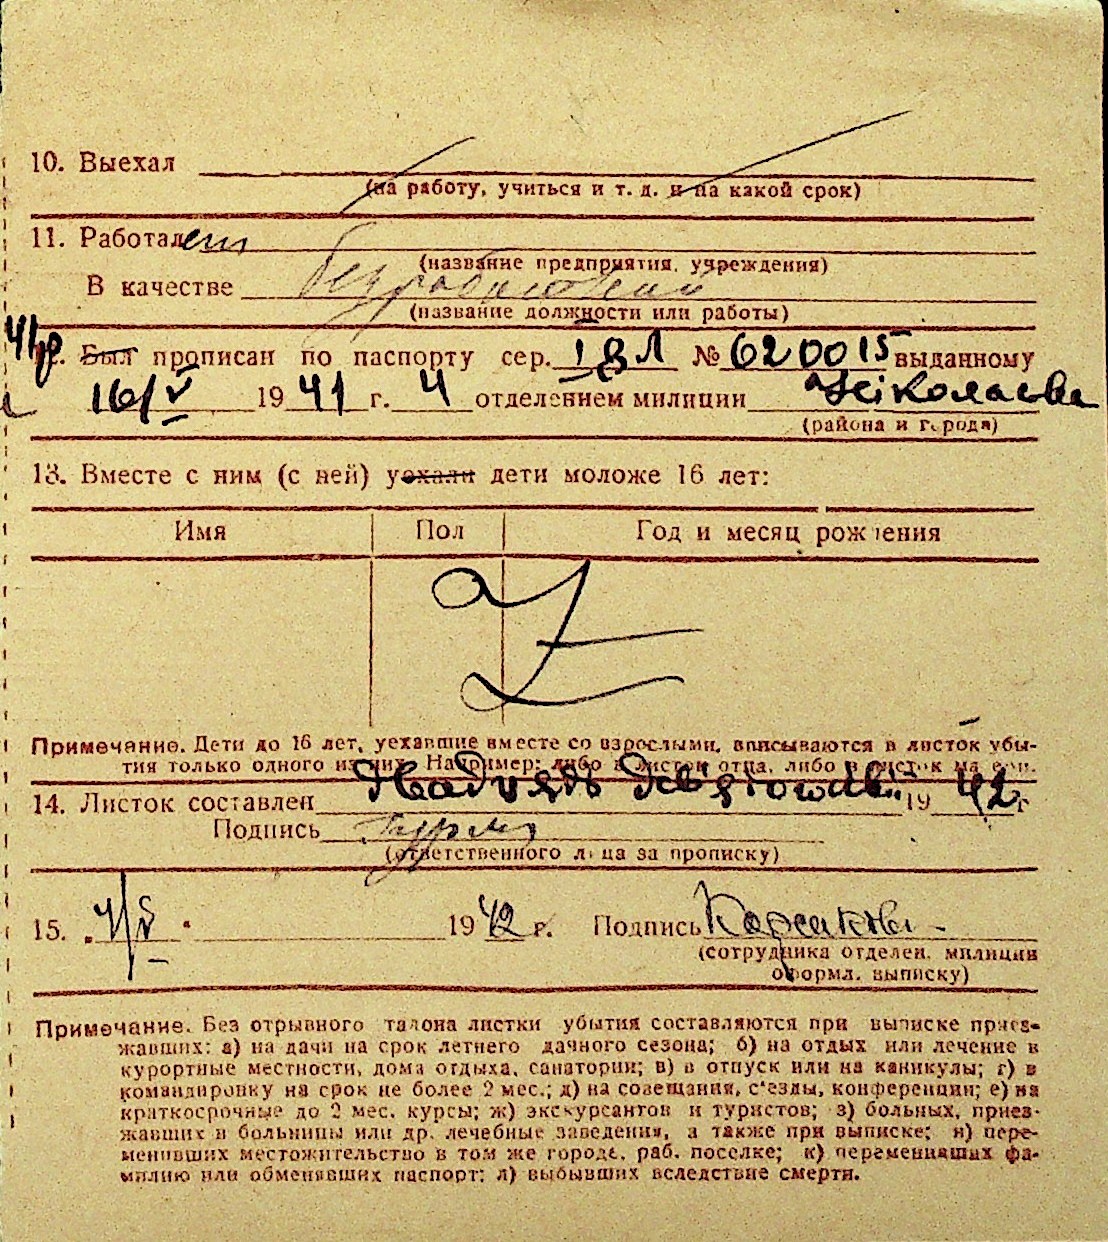 10. Выехал
(на работу, учиться и т. д. и на какой срок)
11. Работал
(название предприятия, учреждения)
В качестве
(название должности или работы)
12. Был прописан по паспорту сер. № 620015 выданному
16/V 1941 г. 4 отделением милиции
(района и города)
13. Вместе с ним (с ней) уехали дети моложе 16 лет:
Имя Пол Год и месяц рождения
Z
Примечание. Дети до 16 лет, уехавшие вместе со взрослыми, вписываются в листок убы-
тия только одного из них. Например: либо в листок отца, либо в листок матери.
14. Листок составлен 1942 г
Подпись
(ответственного лица за прописку)
15. 1942 г. Подпись
(сотрудника отделен. милиции
оформл. выписку)
Примечание. Без отрывного талона листки убытия составляются при выписке приез-
жавших: а) на дачи на срок летнего дачного сезона; б) на отдых или лечение в
курортные местности, дома отдыха, санатории; в) в отпуск или на каникулы; г) в
командировку на срок не более 2 мес.; д) на совещания, с'езды, конференции; е) на
краткосрочные до 2 мес. курсы; ж) экскурсантов и туристов; з) больных, приез-
жавших в больницы или др. лечебные заведения, а также при выписке; и) пере-
менивших местожительство в том же городе, раб. поселке; к) переменивших фа-
милию или обменявших паспорт; л) выбывших вследствие смерти.